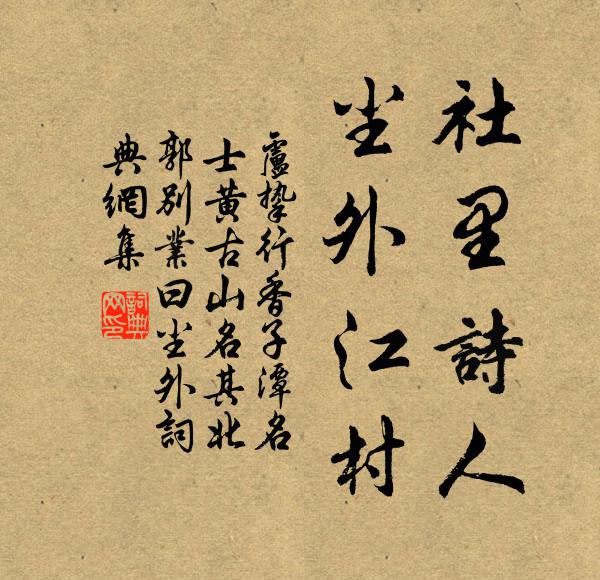 社里詩人
尘外江村
盧摯行香子潭名
士黄古山名其北
郭別業曰尘外詞
典網集
詞典网印